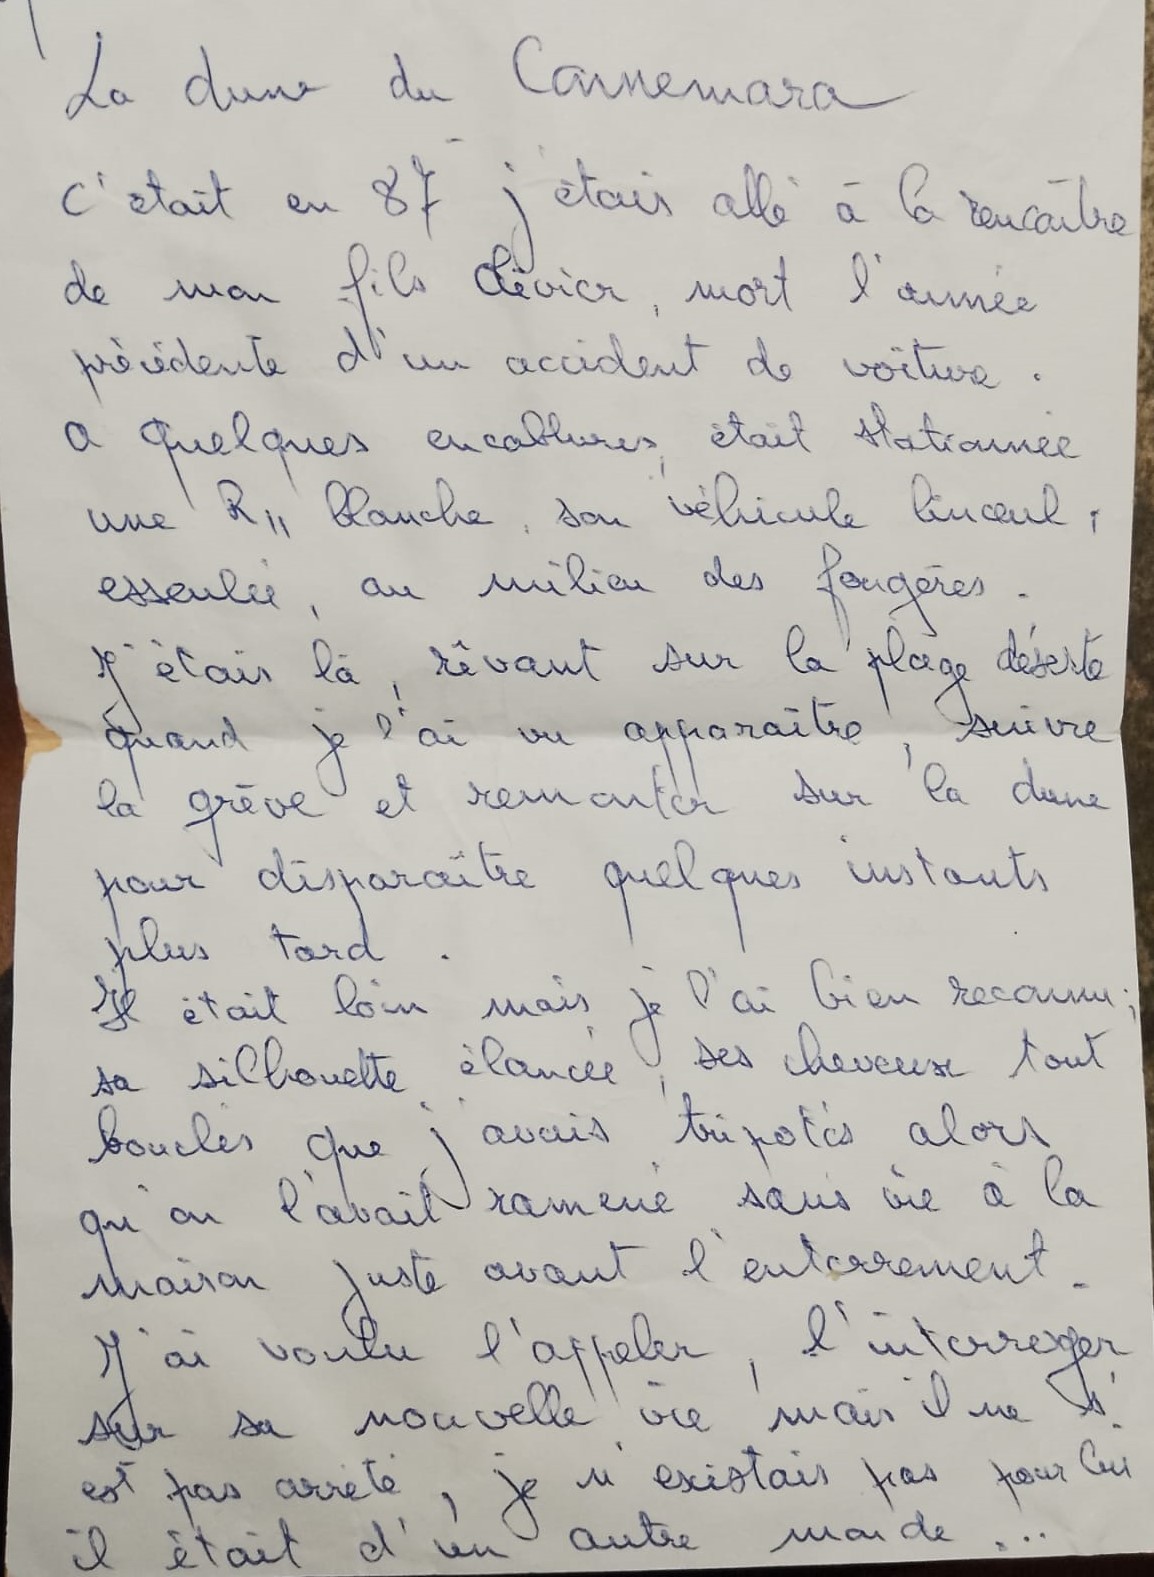 La dune du Connemara
C'était en 87 j'étais allé à la rencontre
de mon fils Olivier, mort l'année
précédente d'un accident de voiture.
A quelques encablures, était stationnée
une R11 blanche, son véhicule linceul,
esseulée, au milieu des fougères.
J'étais là, rêvant sur la plage déserte
quand je l'ai vu apparaître, suivre
la grève et remonter sur la dune
pour disparaître quelques instants
plus tard.
Il était loin mais je l'ai bien reconnu ;
sa silhouette élancée, ses cheveux tout
bouclés que j'avais tripotés alors
qu'on l'avait ramené sans vie à la
maison juste avant l'enterrement.
J'ai voulu l'appeler, l'interroger
sur sa nouvelle vie mais il ne s'
est pas arrêté, je n'existais pas pour lui
il était d'un autre monde ...